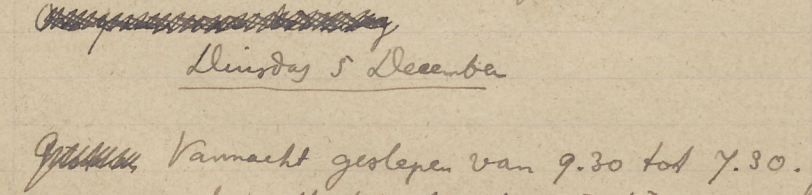 Dinsdag 5 December
Vannacht geslepen van 9.30 tot 7.30.